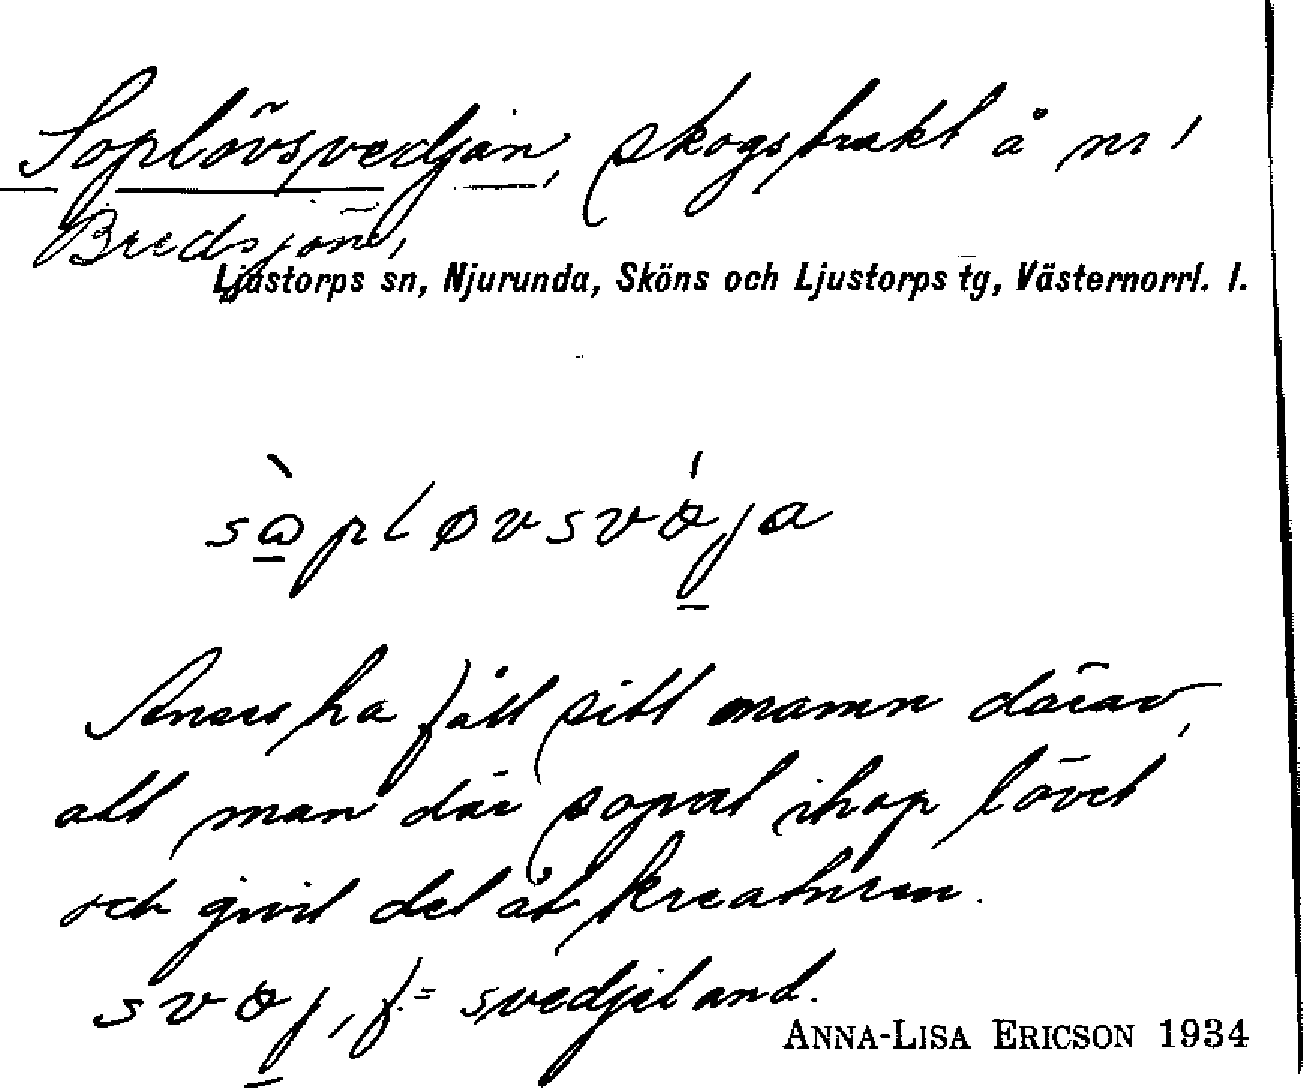 Soplövsvedjan, skogstrakt å nr 1
Bredsjön,
Ljustorps sn, Njurunda, Sköns och Ljustorps tg, Västernorrl. l.
Anses ha fått sitt namn därav,
att man där sopat ihop lövet
och givit det åt kreaturen.
f. = svedjeland.
ANNA-LISA ERICSON 1934